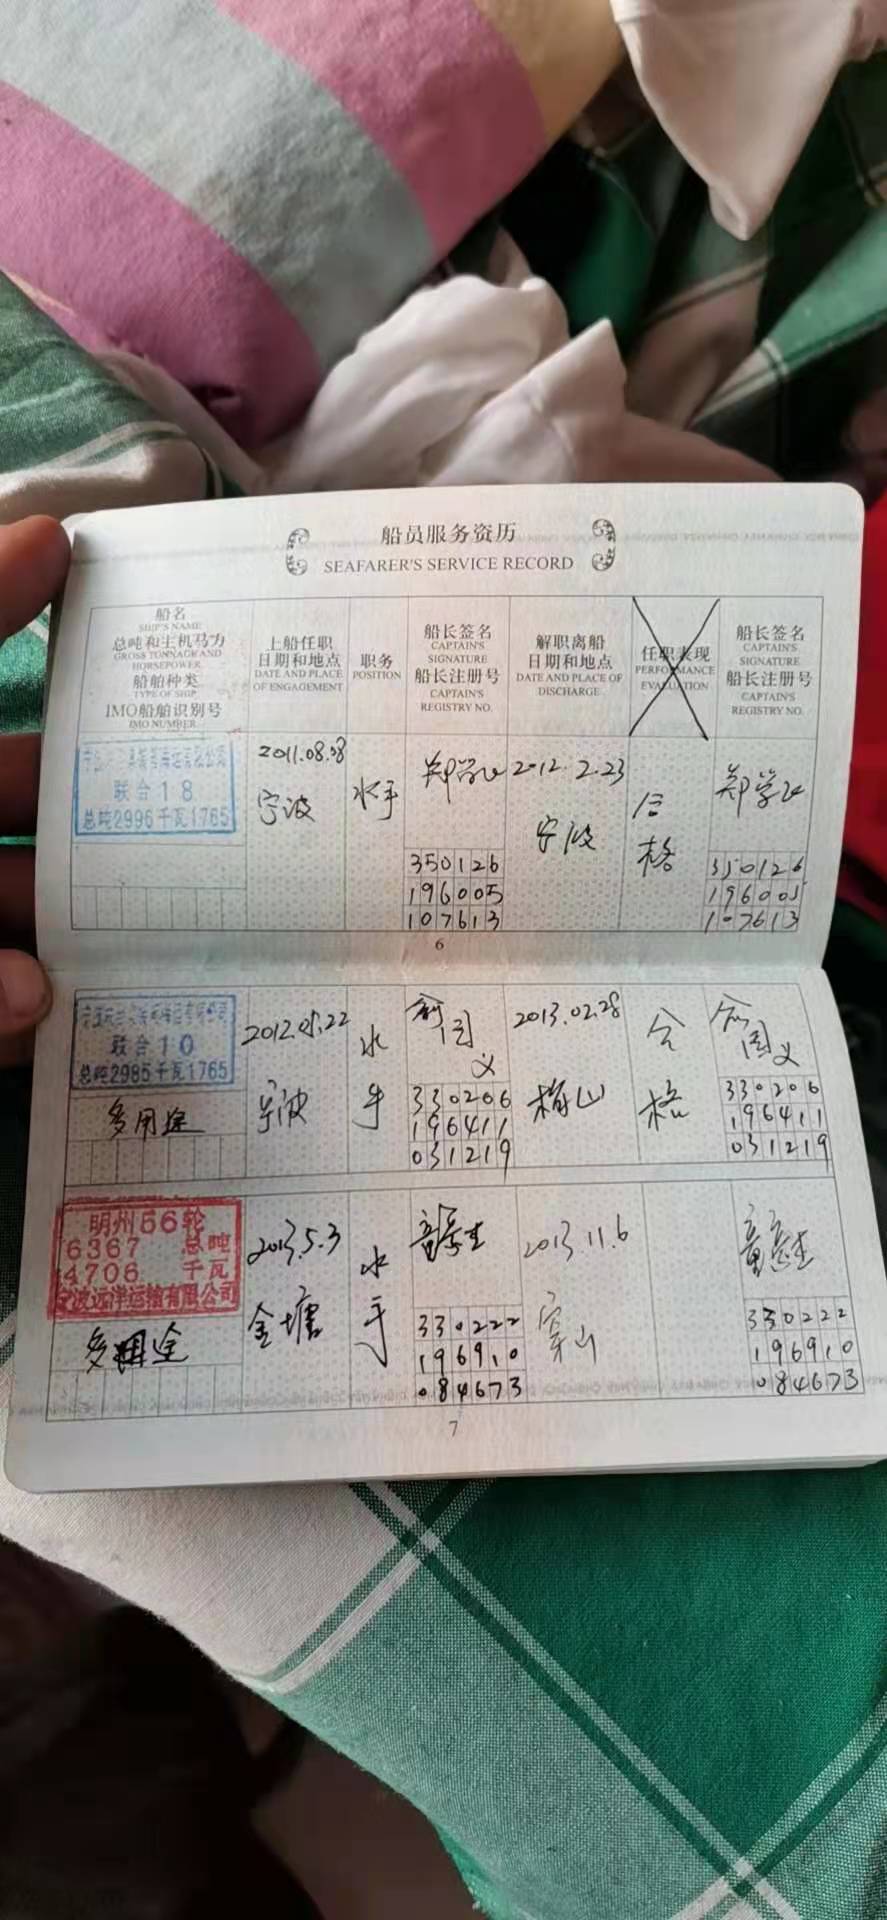 船员服务资历
SEAFARER'S SERVICE RECORD
船名
SHIP'S NAME
总吨和主机马力
GROSS TONNAGE AND
HORSEPOWER
船舶种类
TYPE OF SHIP
IMO船舶识别号
IMO NUMBER
上船任职
日期和地点
DATE AND PLACE
OF ENGAGEMENT
职务
POSITION
船长签名
CAPTAIN'S
SIGNATURE
船长注册号
CAPTAIN'S
REGISTRY NO.
解职离船
日期和地点
DATE AND PLACE OF
DISCHARGE
任职表现
PERFORMANCE
EVALUATION
船长签名
CAPTAIN'S
SIGNATURE
船长注册号
CAPTAIN'S
REGISTRY NO.
联合18
总吨2996千瓦1765
2011.08.08
宁波
水手
350126
196005
107613
2012.2.23
宁波
合格
350126
196005
107613
6
联合10
总吨2985千瓦1765
多用途
2012.05.22
宁波
水手
330206
196411
031219
2013.02.28
梅山
合格
330206
196411
031219
明州56轮
6367 总吨
4706 千瓦
宁波远洋运输有限公司
多用途
2013.5.3
金塘
水手
330222
196910
084673
2013.11.6
穿山
330222
196910
084673
7